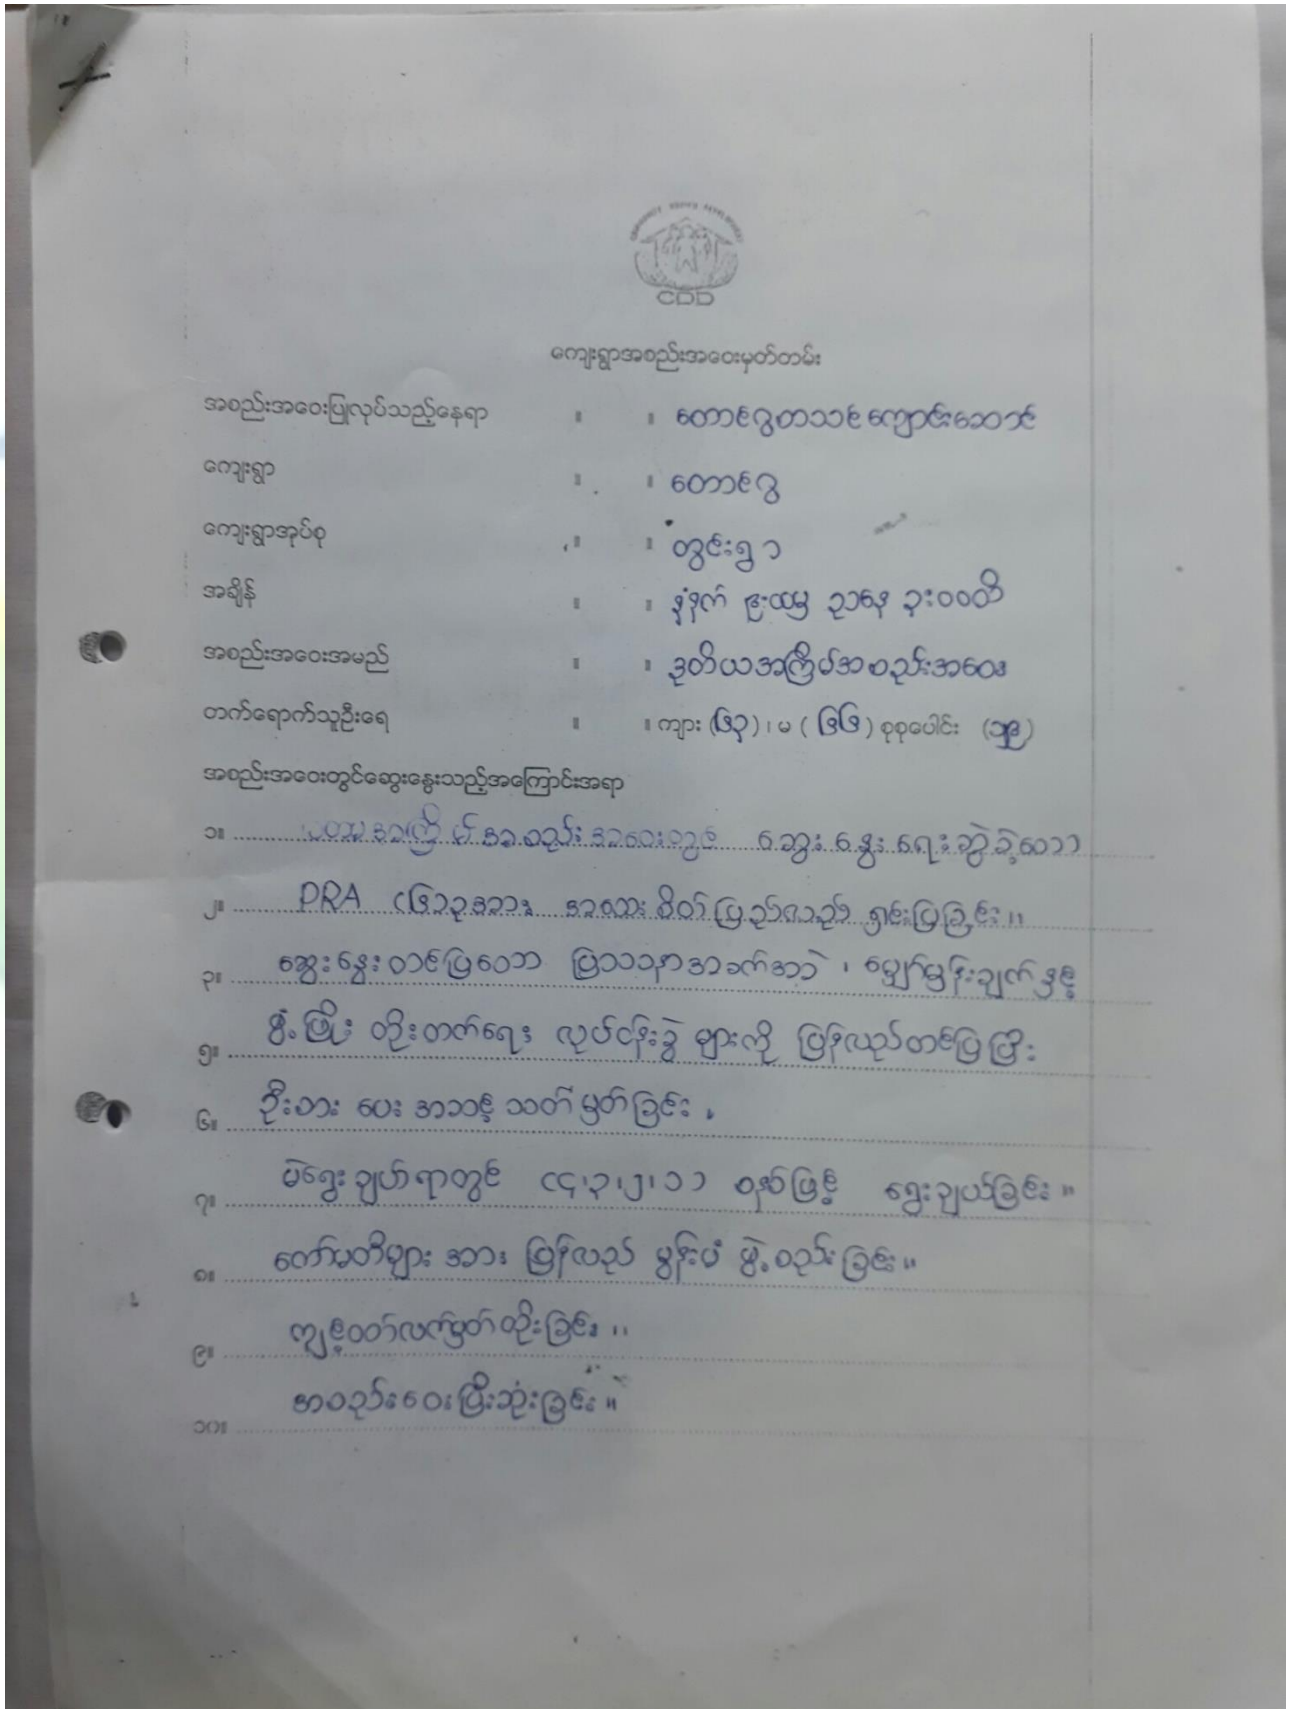 COMMUNITY DRIVEN DEVELOPMENT
CDD
ကျေးရွာအစည်းအဝေးမှတ်တမ်း
အစည်းအဝေးပြုလုပ်သည့်နေရာ ။ ။ တောင်ဂွတသင်ကျောင်းဆောင်
ကျေးရွာ ။ ။ တောင်ဂွ
ကျေးရွာအုပ်စု ။ ။ တွင်းရွာ
အချိန် ။ ။ နံနက် ၉းထမှ ညနေ ၃း၀၀ထိ
အစည်းအဝေးအမည် ။ ။ ဒုတိယအကြိမ်အစည်းအဝေး
တက်ရောက်သူဦးရေ ။ ။ ကျား (၆၃) ၊ မ ( ၆၆ ) စုစုပေါင်း
အစည်းအဝေးတွင်ဆွေးနွေးသည့်အကြောင်းအရာ
၁။ ပထမအကြိမ်အစည်းအဝေးတွင် ဆွေးနွေးရေးဆွဲခဲ့သော
၂။ PRA (၆)ခုအား အသေးစိတ်ပြည်လည် ရှင်းပြခြင်း။
၃။ ဆွေးနွေးတင်ပြသော ပြဿနာအခက်အခဲ ၊ မျှော်မှန်းချက်နှင့်
၅။ ဖွံ့ဖြိုး တိုးတက်ရေး လုပ်ငန်းခွဲ များကို ပြန်လည်တင်ပြပြီး
၆။ ဦးစားပေးအဆင့်သတ်မှတ်ခြင်း ။
၇။ မဲရွေးချယ်ရာတွင် (၄၊၃၊၂၊၁) စနစ်ဖြင့် ရွေးချယ်ခြင်း ။
၈။ ကော်မတီများ အား ပြန်လည် မွန်းမံ ဖွဲ့စည်းခြင်း။
၉။ ကျင့်ဝတ်လက်မှတ်ထိုးခြင်း ။
၁၀။ အစည်းဝေးပြီးဆုံးခြင်း ။